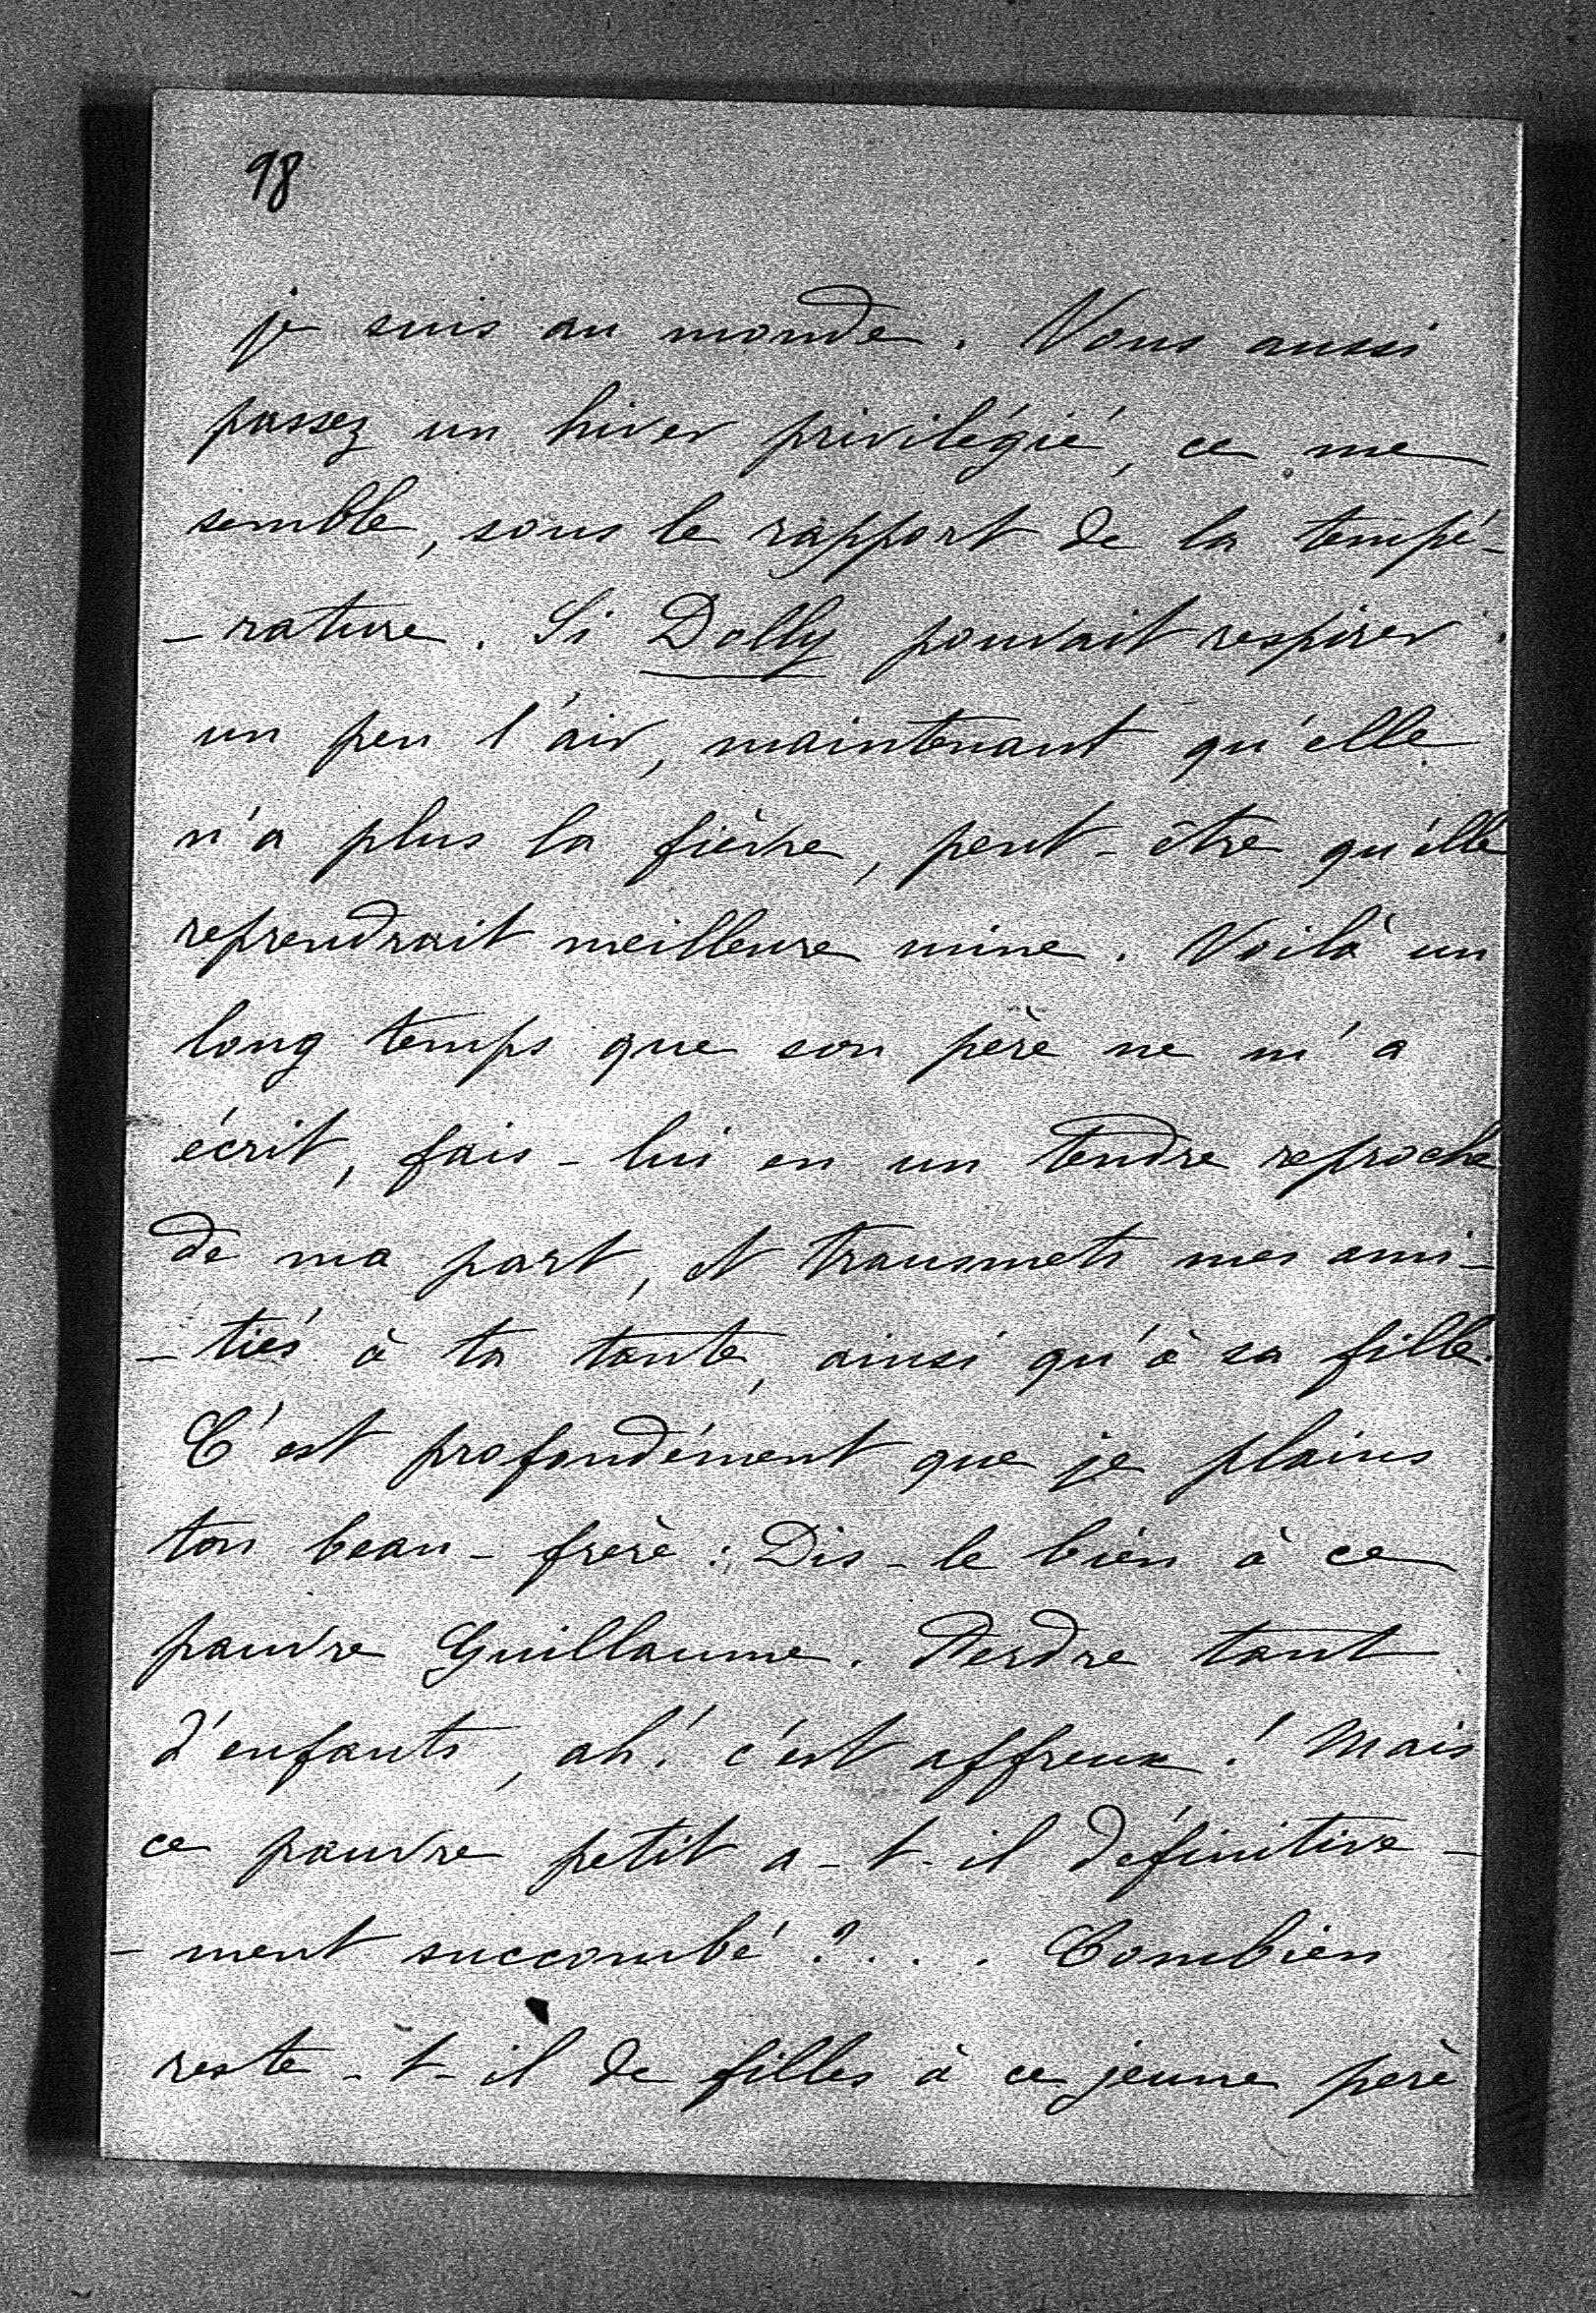 98
je suis au monde. Vous aussi
passez un hiver privilégié, ce me
semble, sous le rapport de la tempé-
- rature. Si Dolly pouvait respirer
un peu l'air, maintenant qu'elle
n'a plus la fièvre, peut-être qu'elle
reprendrait meilleure mine. Voilà un
long temps que son père ne m'a
écrit, fais-lui en un tendre reproche
de ma part, et transmets mes ami-
- tiés à ta tante, ainsi qu'à sa fille.
C'est profondément que je plains
ton beau-frère : Dis-le bien à ce
pauvre Guillaume. Perdre tant
d'enfants, ah! c'est affreux! Mais
ce pauvre petit a-t-il définitive-
- ment succombé?... Combien
reste-t-il de filles à ce jeune père